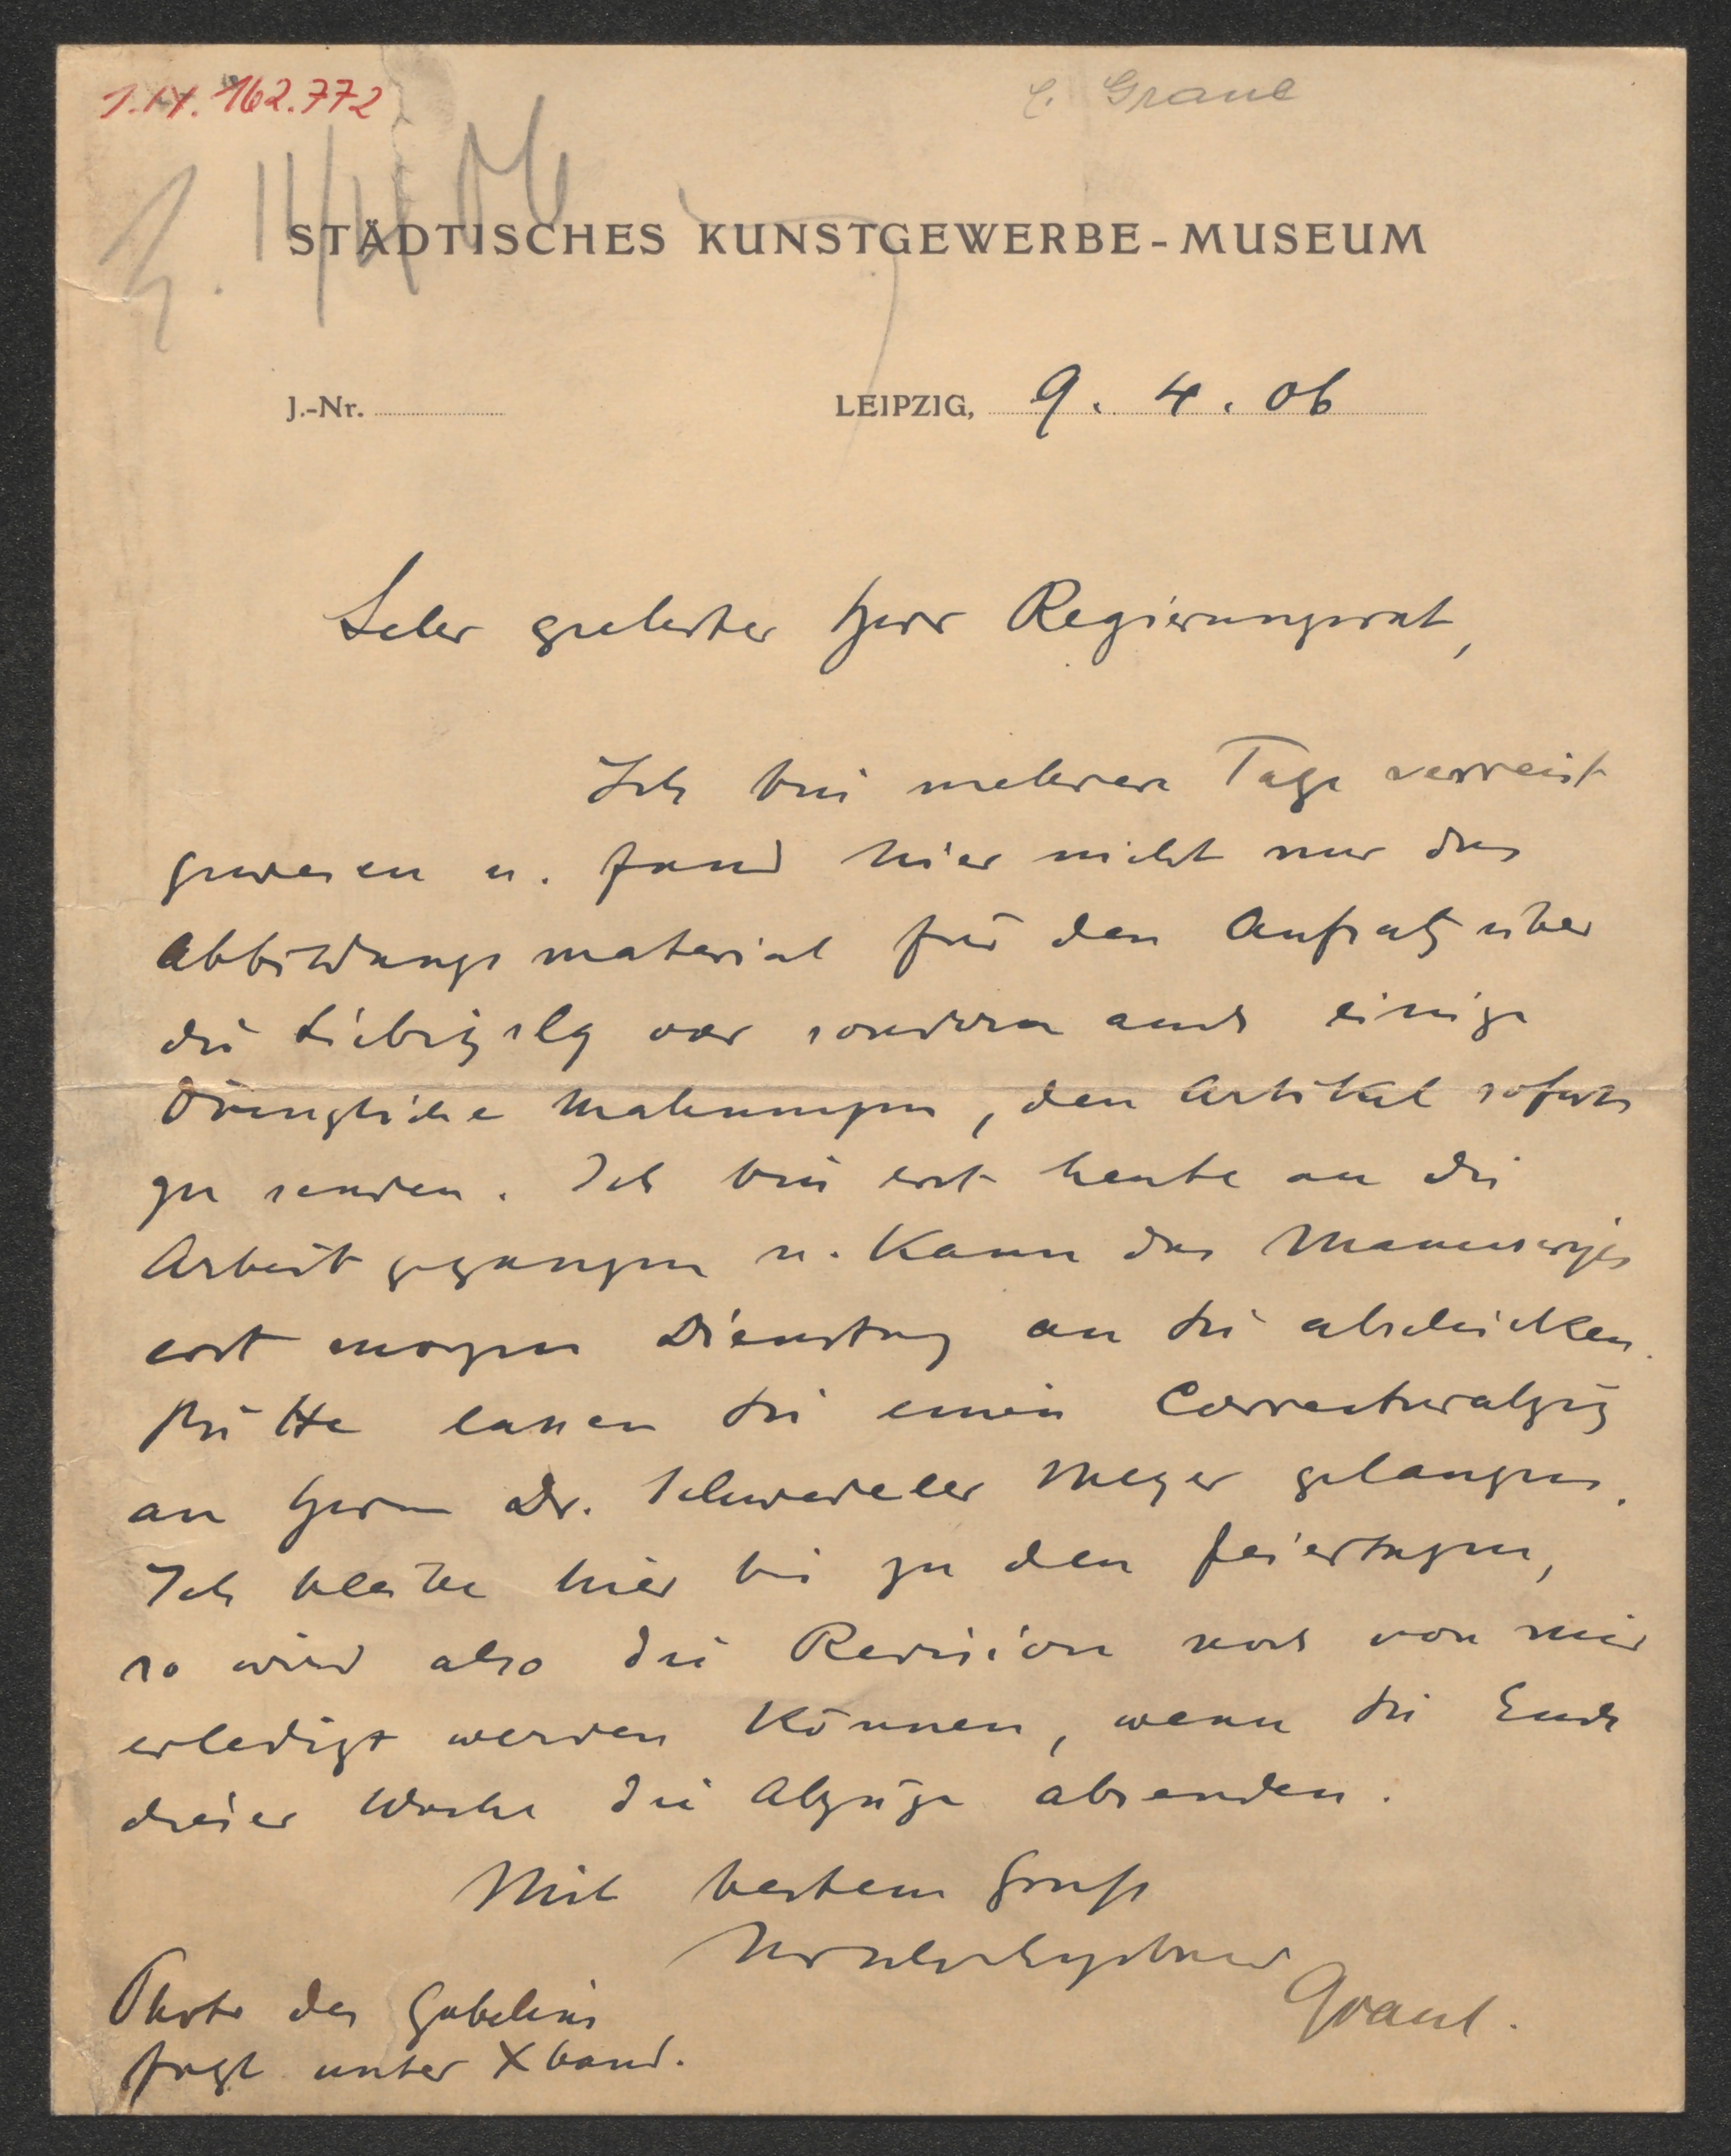 1.IX.162.772
E. Graul
E. 11/4 06
STÄDTISCHES KUNSTGEWERBE-MUSEUM
J.-Nr. LEIPZIG, 9. 4. 06
Sehr geehrter Herr Regierungsrat,
Ich bin mehrere Tage verreist
gewesen u. fand hier nicht nur das
Abbildungsmaterial für den Aufsatz über
die vor sondern auch einige
dringliche Mahnungen, den Artikel sofort
zu senden. Ich bin erst heute an die
Arbeit gegangen u. kann das Manuscript
erst morgen Dienstag an Sie abschicken.
Bitte lassen Sie einen Correcturabzug
an Herrn Dr. Schwedeler Meyer gelangen.
Ich bleibe hier bis zu den Feiertagen,
so wird also die Revision noch von mir
erledigt werden können, wenn Sie Ende
dieser Woche die Abzüge absenden.
Mit bestem Gruß
Graul.
Photo des Gobelins
folgt unter Xband.